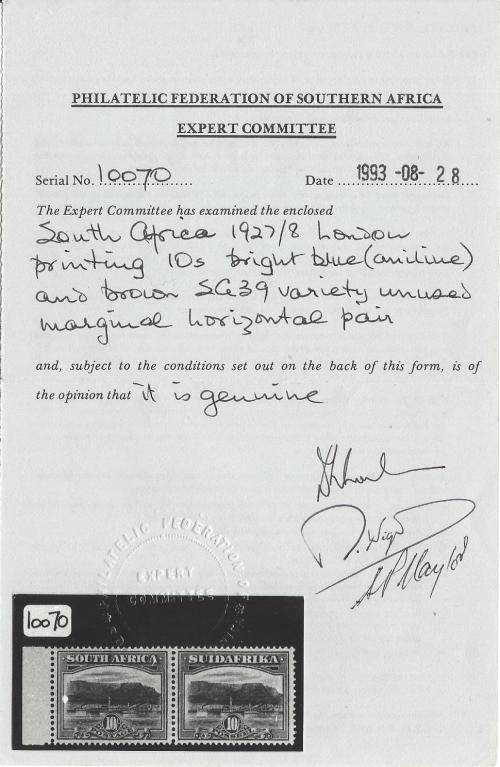 PHILATELIC FEDERATION OF SOUTHERN AFRICA
EXPERT COMMITTEE
Serial No. 10070 Date 1993 -08- 28
The Expert Committee has examined the enclosed
South Africa 1927/8 London
printing 10s bright blue (aniline)
and brown SG39 variety unused
marginal horizontal pair
and, subject to the conditions set out on the back of this form, is of
the opinion that it is genuine
PHILATELIC FEDERATION OF
EXPERT
COMMITTEE
10070
SOUTH AFRICA SUIDAFRIKA
10 10